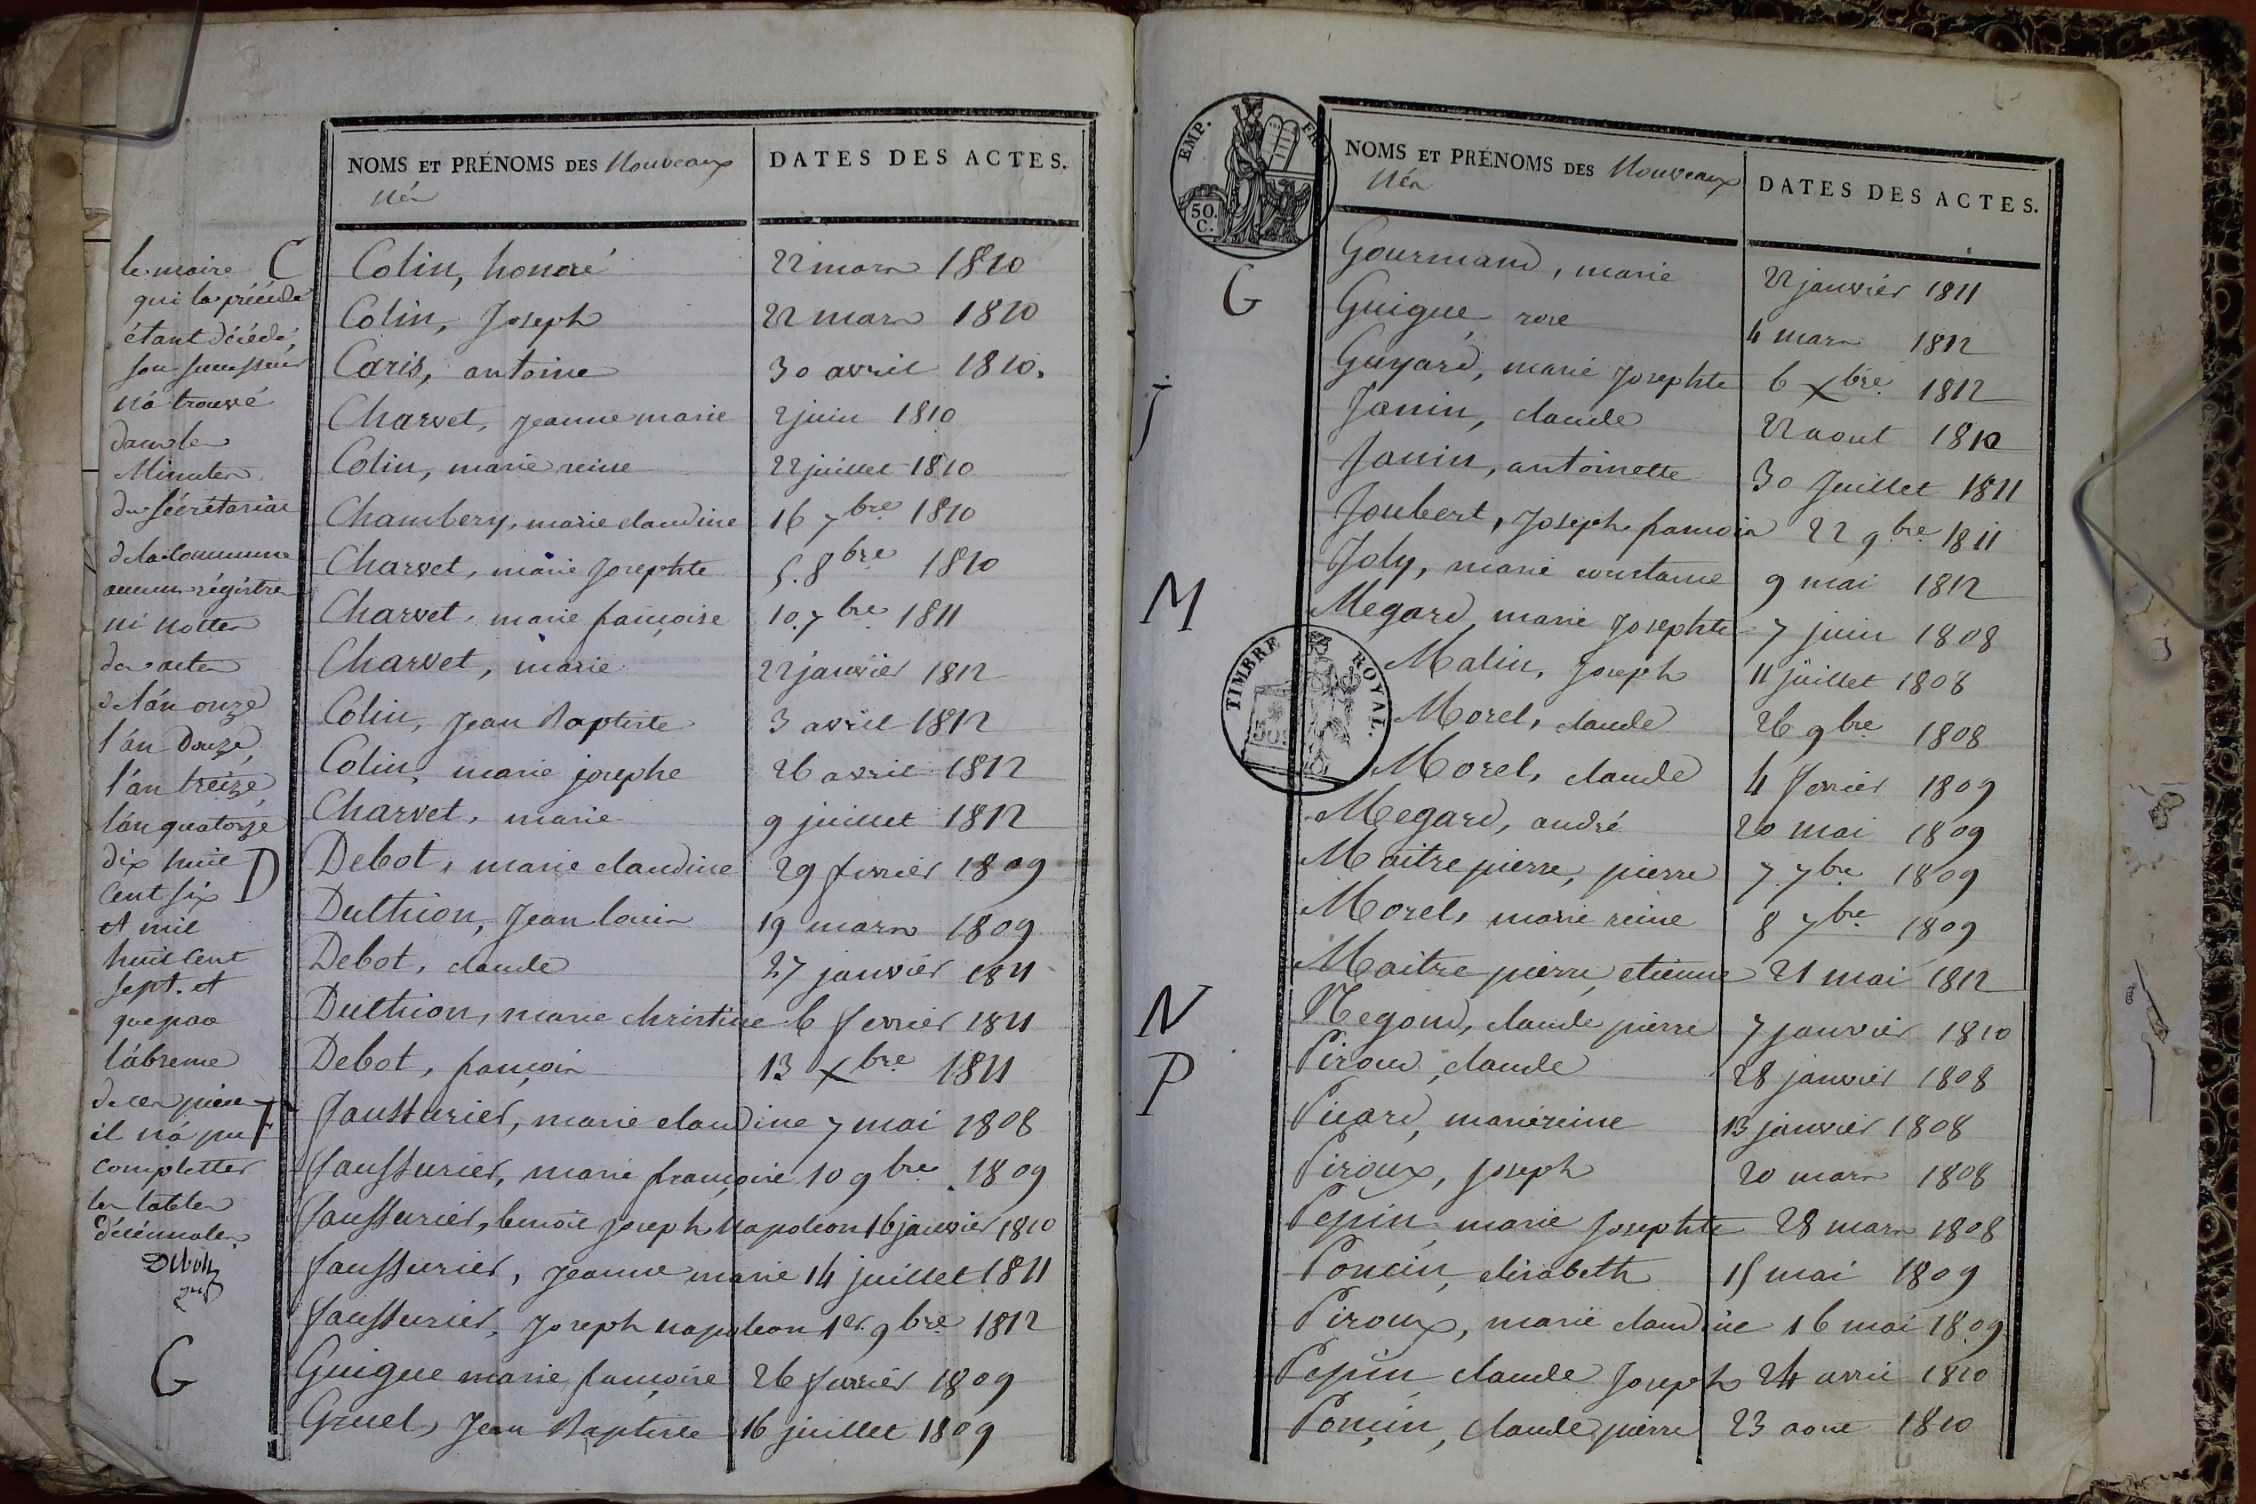 NOMS ET PRÉNOMS DES Nouveaux
Nés
DATES DES ACTES.
le maire
qui la précéda
étant décédé,
son successeur
n'a trouvé
dans les
Minutes
du sécrétariat
de la commune
aucun régistre
ni nottes
des actes
de l'an onze
l'an douze,
l'an treize,
l'an quatorze
dix huit
cent six
et mil
huit cent
sept. et
que par
l'absence
de ces pieces
il n'a pu
completter
les tables
décennales
C
Colin, honoré 22 mars 1810
Colin, Joseph 22 mars 1810
Caris, antoine 30 avril 1810.
Charvet, jeanne marie 2 juin 1810
Colin, marie reine 22 juillet 1810
Chambery, marie claudine 16 7bre 1810
Charvet, marie Josephte 5. 8bre 1810
Charvet, marie françoise 10. 7bre 1811
Charvet, marie 22 janvier 1812
Colin, Jean Baptiste 3 avril 1812
Colin, marie josephe 26 avril 1812
Charvet, marie 9 juillet 1812
D
Debot, marie claudine 29 fevrier 1809
Dulthion, Jean louis 19 mars 1809
Debot, claude 27 janvier 1811
Dulthion, marie christine 6 fevrier 1811
Debot, françois 13 Xbre 1811
F
faussurier, marie claudine 7 mai 1808
faussurier, marie françoise 10 9bre 1809
faussurier, benoit Joseph napoleon 16 janvier 1810
faussurier, jeanne marie 14 juillet 1811
faussurier, Joseph napoleon 1er 9bre 1812
G
Guigue marie françoise 26 fevrier 1809
Gruel, Jean Baptiste 16 juillet 1809
EMP. FR
50.
C.
NOMS ET PRÉNOMS DES Nouveaux
Nés
DATES DES ACTES.
Gourmand, marie 22 janvier 1811
G
Guigue, rose 4 mars 1812
Guyard, marie Josephte 6 Xbre 1812
J
Janin, claude 22 aout 1810
Janin, antoinette 30 Juillet 1811
Joubert, Joseph françois 22 9bre 1811
Joly, marie constance 9 mai 1812
M
Megard, marie Josephte 7 juin 1808
TIMBRE ROYAL.
50
Malin, Joseph 11 juillet 1808
Morel, claude 26 9bre 1808
Morel, claude 4 fevrier 1809
Megard, andré 20 mai 1809
Maitre pierre, pierre 7 7bre 1809
Morel, marie reine 8 7bre 1809
Maitre pierre, etienne 21 mai 1812
N
Negoud, claude pierre 7 janvier 1810
P
Piroud, claude 28 janvier 1808
Picard, marie reine 13 janvier 1808
Piroux, Joseph 20 mars 1808
Pepin, marie Josephte 28 mars 1808
Poncin, elisabeth 15 mai 1809
Piroux, marie claudine 16 mai 1809
Pepin, claude Joseph 24 avril 1810
Poncin, claude pierre 23 aout 1810